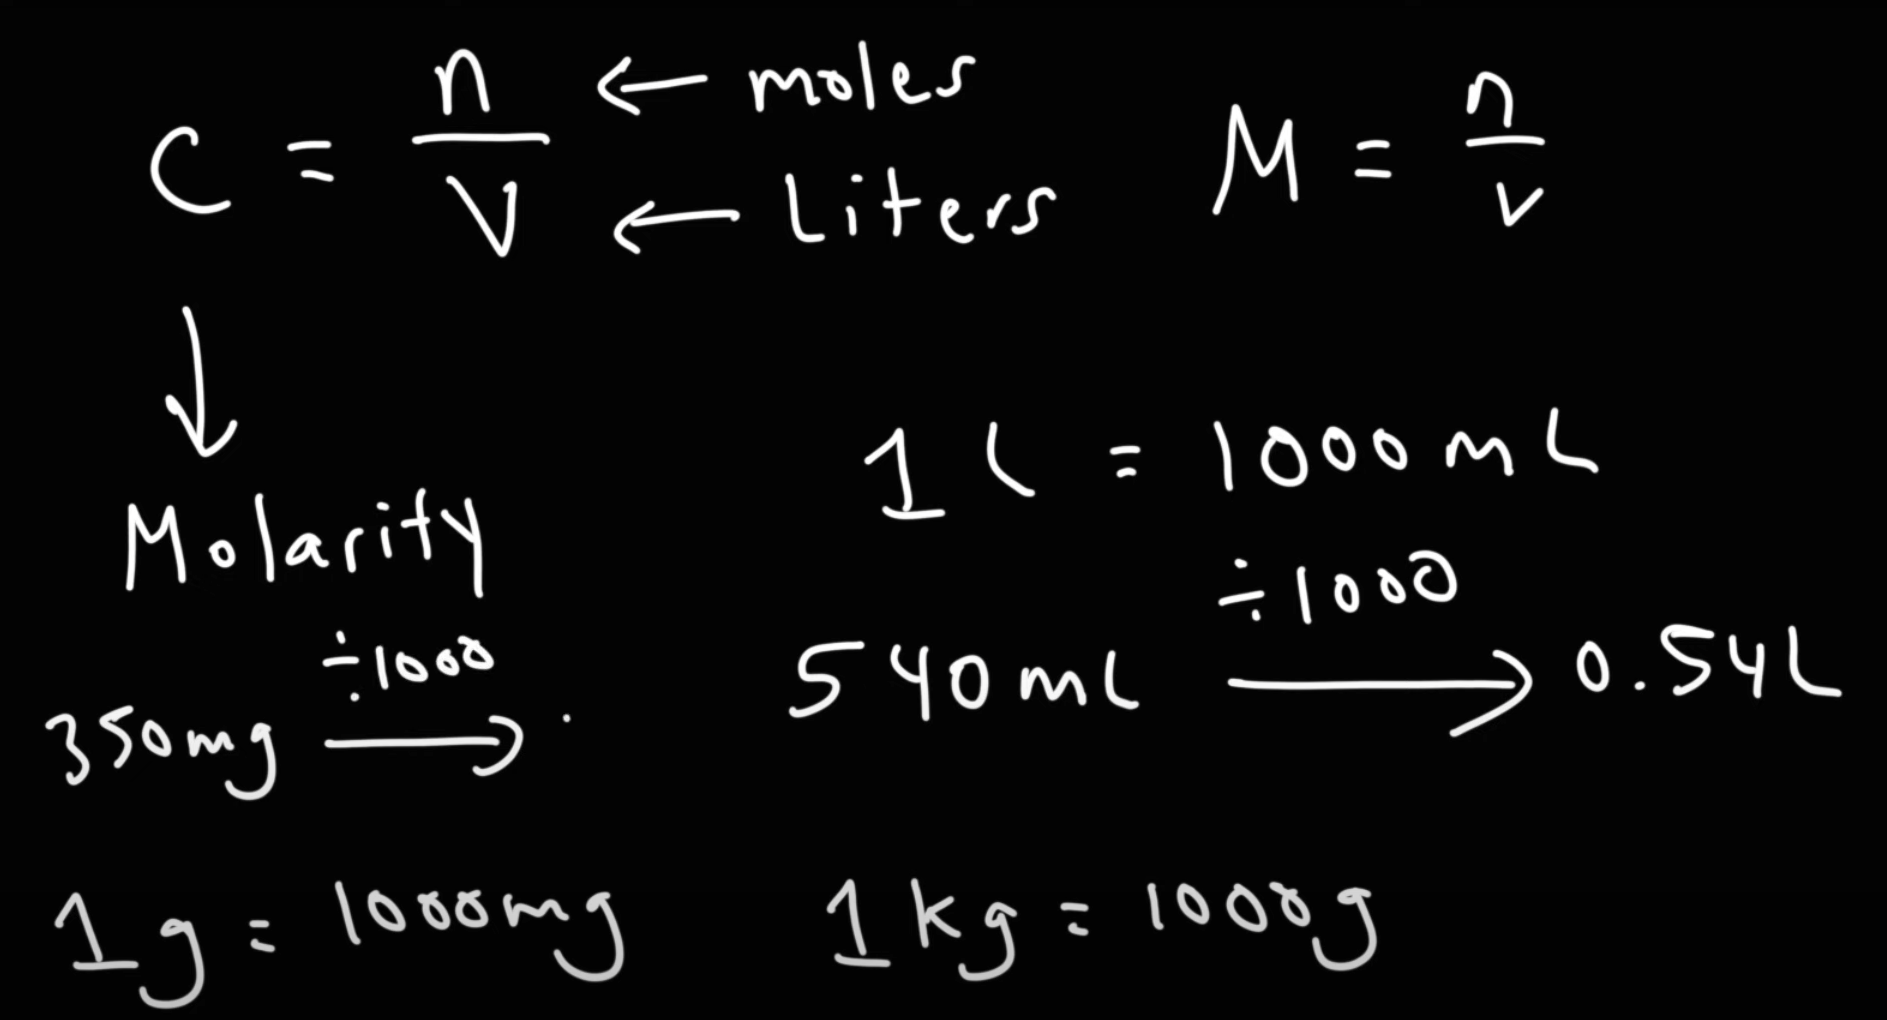 C = n/V ← moles
← Liters
M = n/v
↓
Molarity
1 L = 1000 mL
÷1000
540 mL → 0.54L
÷1000
350mg → .
1g = 1000mg
1kg = 1000g